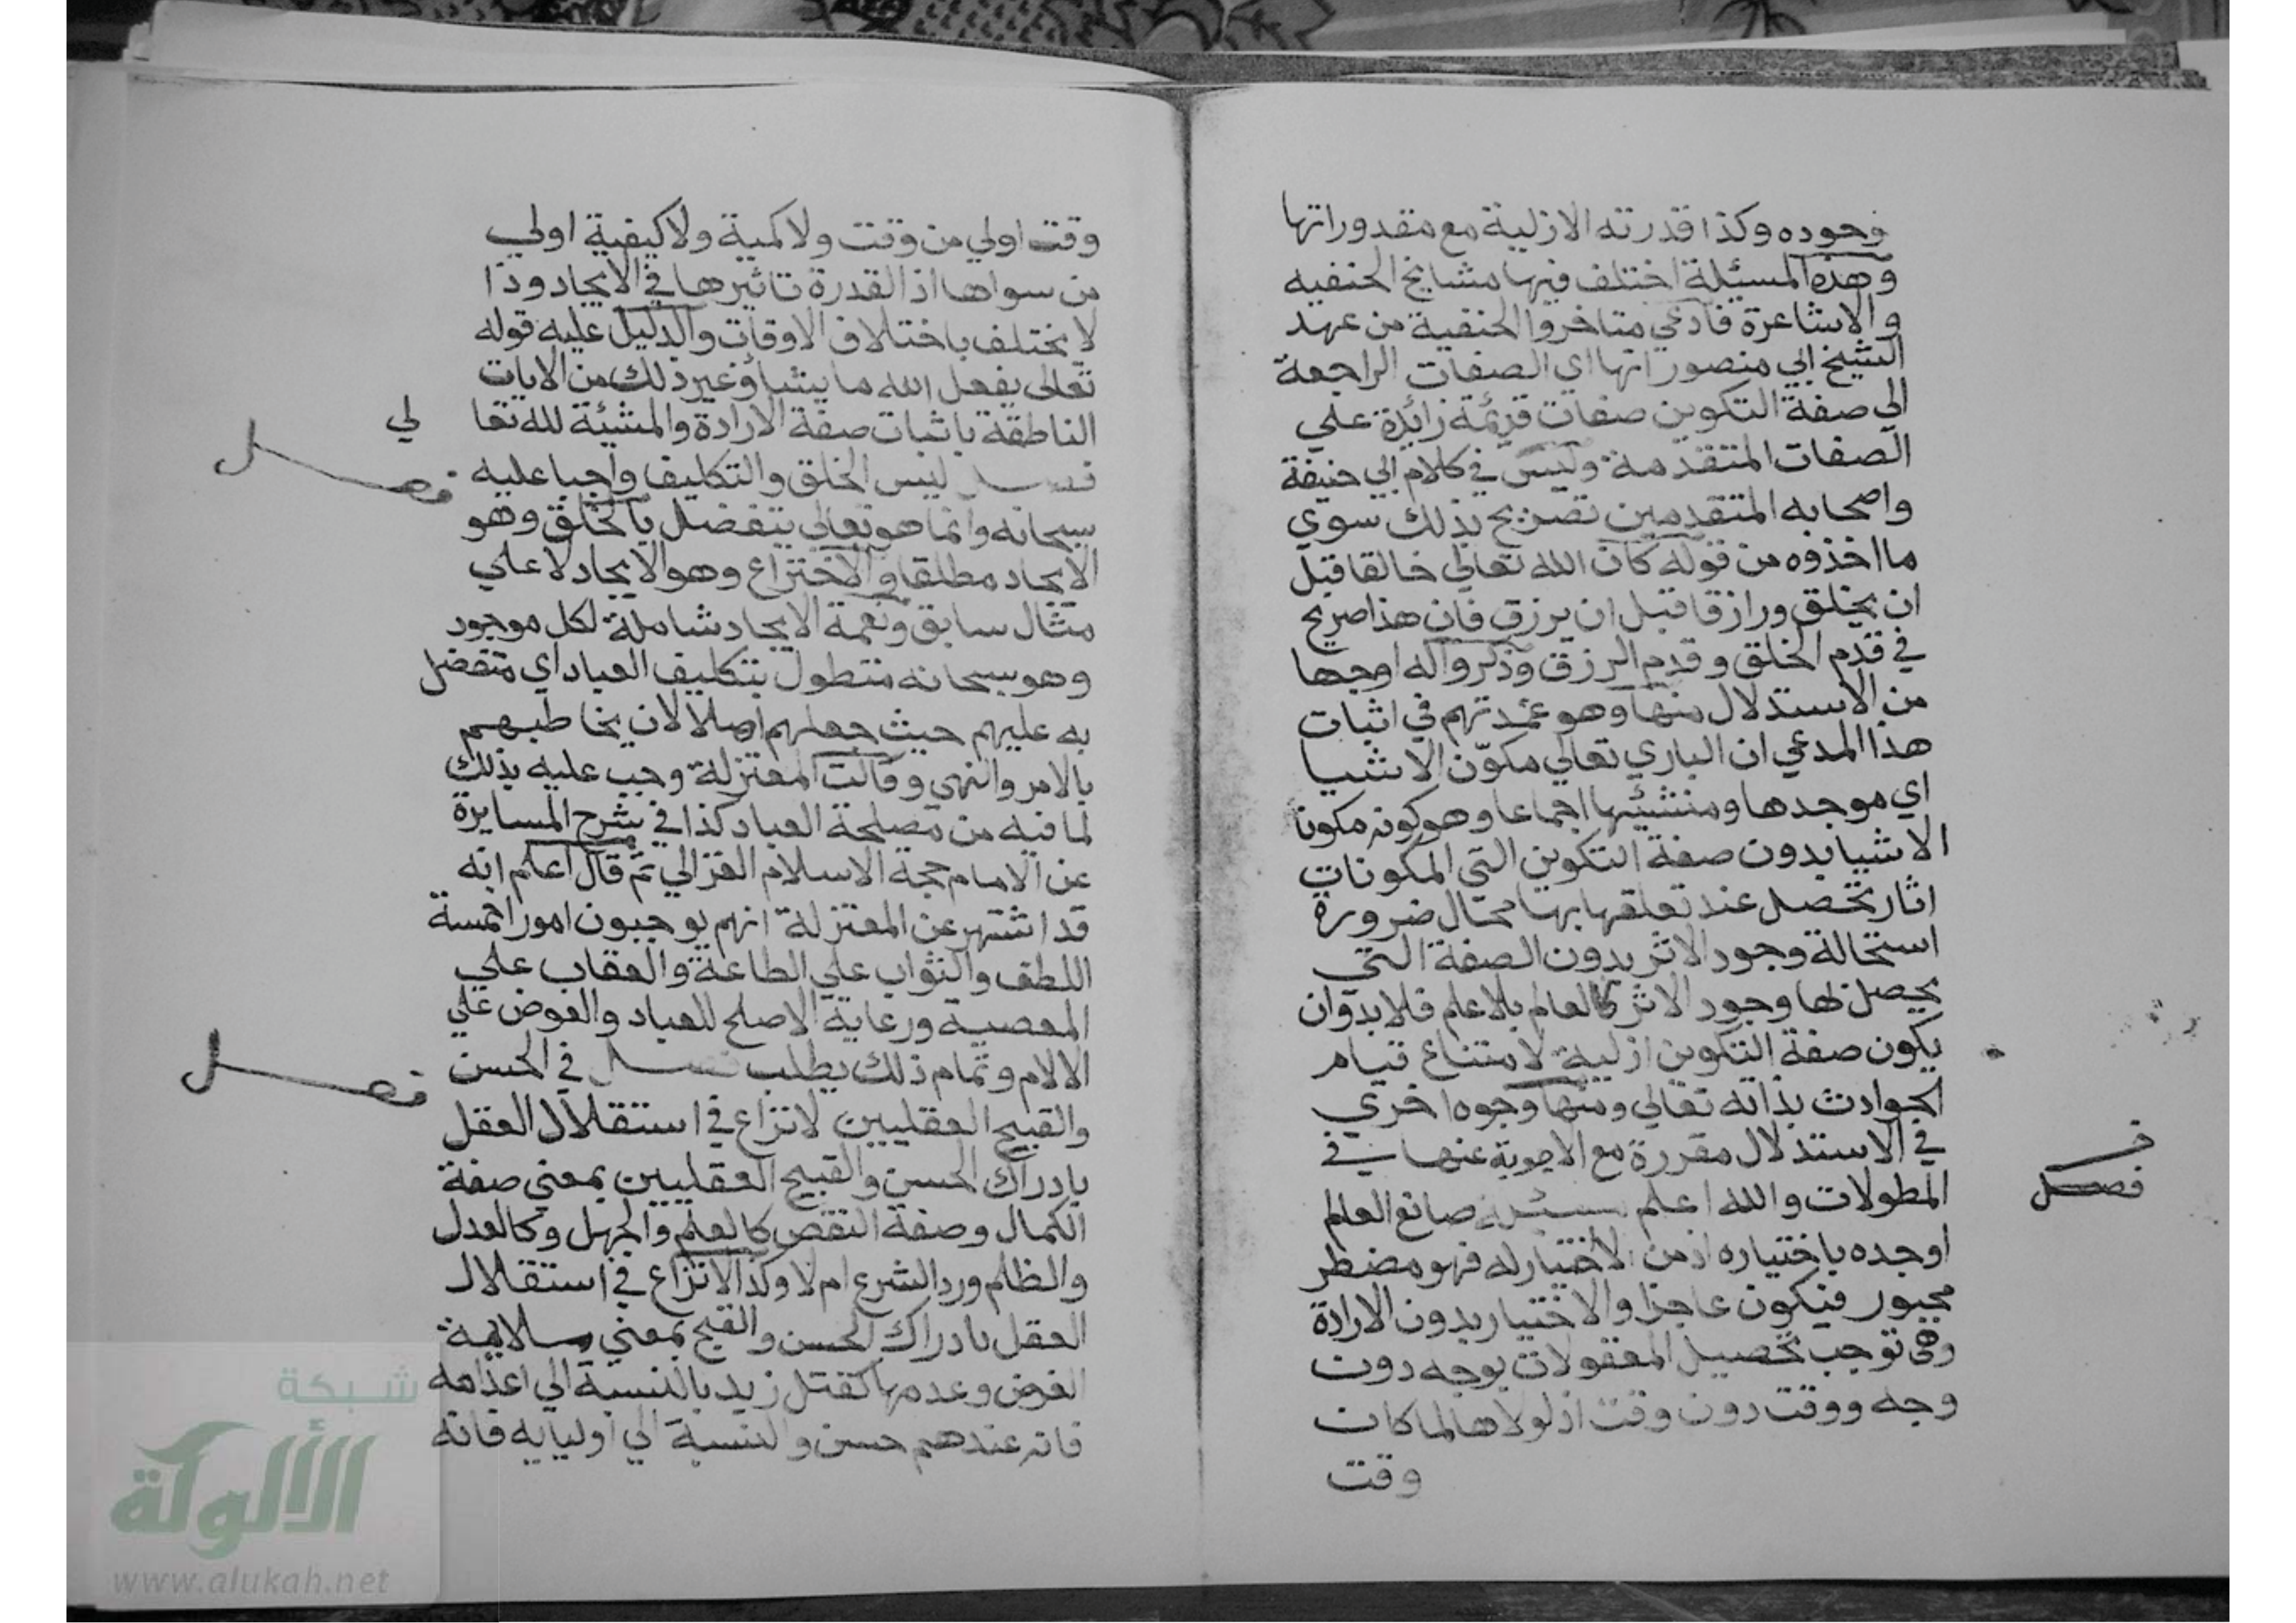 وجوده وكذا قدرته الازلية مع مقدوراتها
وهذه المسئلة اختلف فيها مشايخ الحنفيه
والاشاعرة فادعي متاخروا الحنفية من عهد
الشيخ ابي منصور انها اي الصفات الراجعة
الي صفة التكوين صفات قديمة زائدة علي
الصفات المتقدمة وليس في كلام ابي حنيفة
واصحابه المتقدمين تصريح بذلك سوي
ما اخذوه من قوله كان الله تعالي خالقا قبل
ان يخلق ورازقا قبل ان يرزق فان هذا صريح
في قدم الخلق وقدم الرزق وذكروا له اوجها
من الاستدلال منها وهو عمدتهم في اثبات
هذا المدعي ان الباري تعالي مكوّن الاشيا
اي موجدها ومنشيئها اجماعا وهو كونه مكونا
الاشيا بدون صفة التكوين التي المكونات
اثار تحصل عند تعلقها بها محال ضرورة
استحالة وجود الاثر بدون الصفة التي
يحصل لها وجود الاثر كالعالم بلا علم فلا بد وان
يكون صفة التكوين ازلية لامتناع قيام
الحوادث بذاته تعالي ومنها وجوه اخري
في الاستدلال مقررة مع الاجوبة عنها في
المطولات والله اعلم صانع العالم
فصل
اوجده باختياره اذ من لا اختيار له فهو مضطر
مجبور فيكون عاجزا والاختيار بدون الارادة
وهي توجب تحصيل المعقولات بوجه دون
وجه ووقت دون وقت اذ لولاها لما كان
وقت
وقت اولي من وقت ولا كمية ولا كيفية اولي
من سواها اذ القدرة تاثيرها في الايجاد وذا
لا يختلف باختلاف الاوقات والدليل عليه قوله
تعالى يفعل الله ما يشاؤ غير ذلك من الايات
الناطقة باثبات صفة الارادة والمشئية لله تعا لي
فصل ليس الخلق والتكليف واجبا عليه
فصل
سبحانه وانما هو تعالي يتفضل بالخلق وهو
الايجاد مطلقا والاختراع وهو الايجاد لا علي
مثال سابق ونعمة الايجاد شاملة لكل موجود
وهو سبحانه متطول بتكليف العباد اي متفضل
به عليهم حيث جعلهم اصلا لان يخاطبهم
بالامر والنهي وقالت المعتزلة وجب عليه بذلك
لما فيه من مصلحة العباد كذا في شرح المسايرة
عن الامام حجة الاسلام الغزالي ثم قال اعلم انه
قد اشتهر عن المعتزلة انهم يوجبون امورا خمسة
اللطف والثواب علي الطاعة والعقاب علي
المعصية ورعاية الاصلح للعباد والعوض علي
الالام وتمام ذلك يطلب فصل في الحسن
فصل
والقبيح العقليين لا نزاع في استقلال العقل
بادراك الحسن والقبيح العقليين بمعني صفة
الكمال وصفة النقص كالعلم والجهل وكالعدل
والظلم ورد الشرع ام لا وكذا لا نزاع في استقلال
العقل بادراك الحسن والقبح بمعني
الغرض وعدمها كقتل زيد بالنسبة الي اعدامه
فانه عندهم حسن والنسبة الي اوليايه فانه
شبكة
الألوكة
www.alukah.net